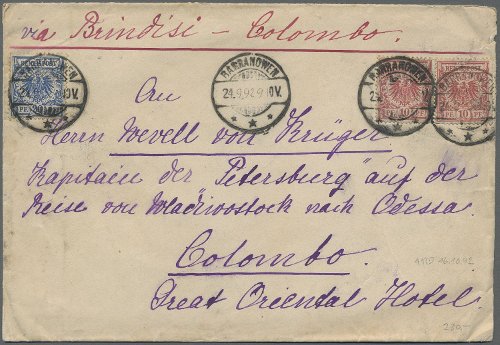 via Brindisi – Colombo.
BARRANOWEN
21.9.92 9-10V.
BARRANOWEN
An
Herrn Wevell von Krüger
Kapitain der Petersburg auf der
Reise von Wladiwostock nach Odessa.
Colombo.
Great Oriental Hotel.
230,-